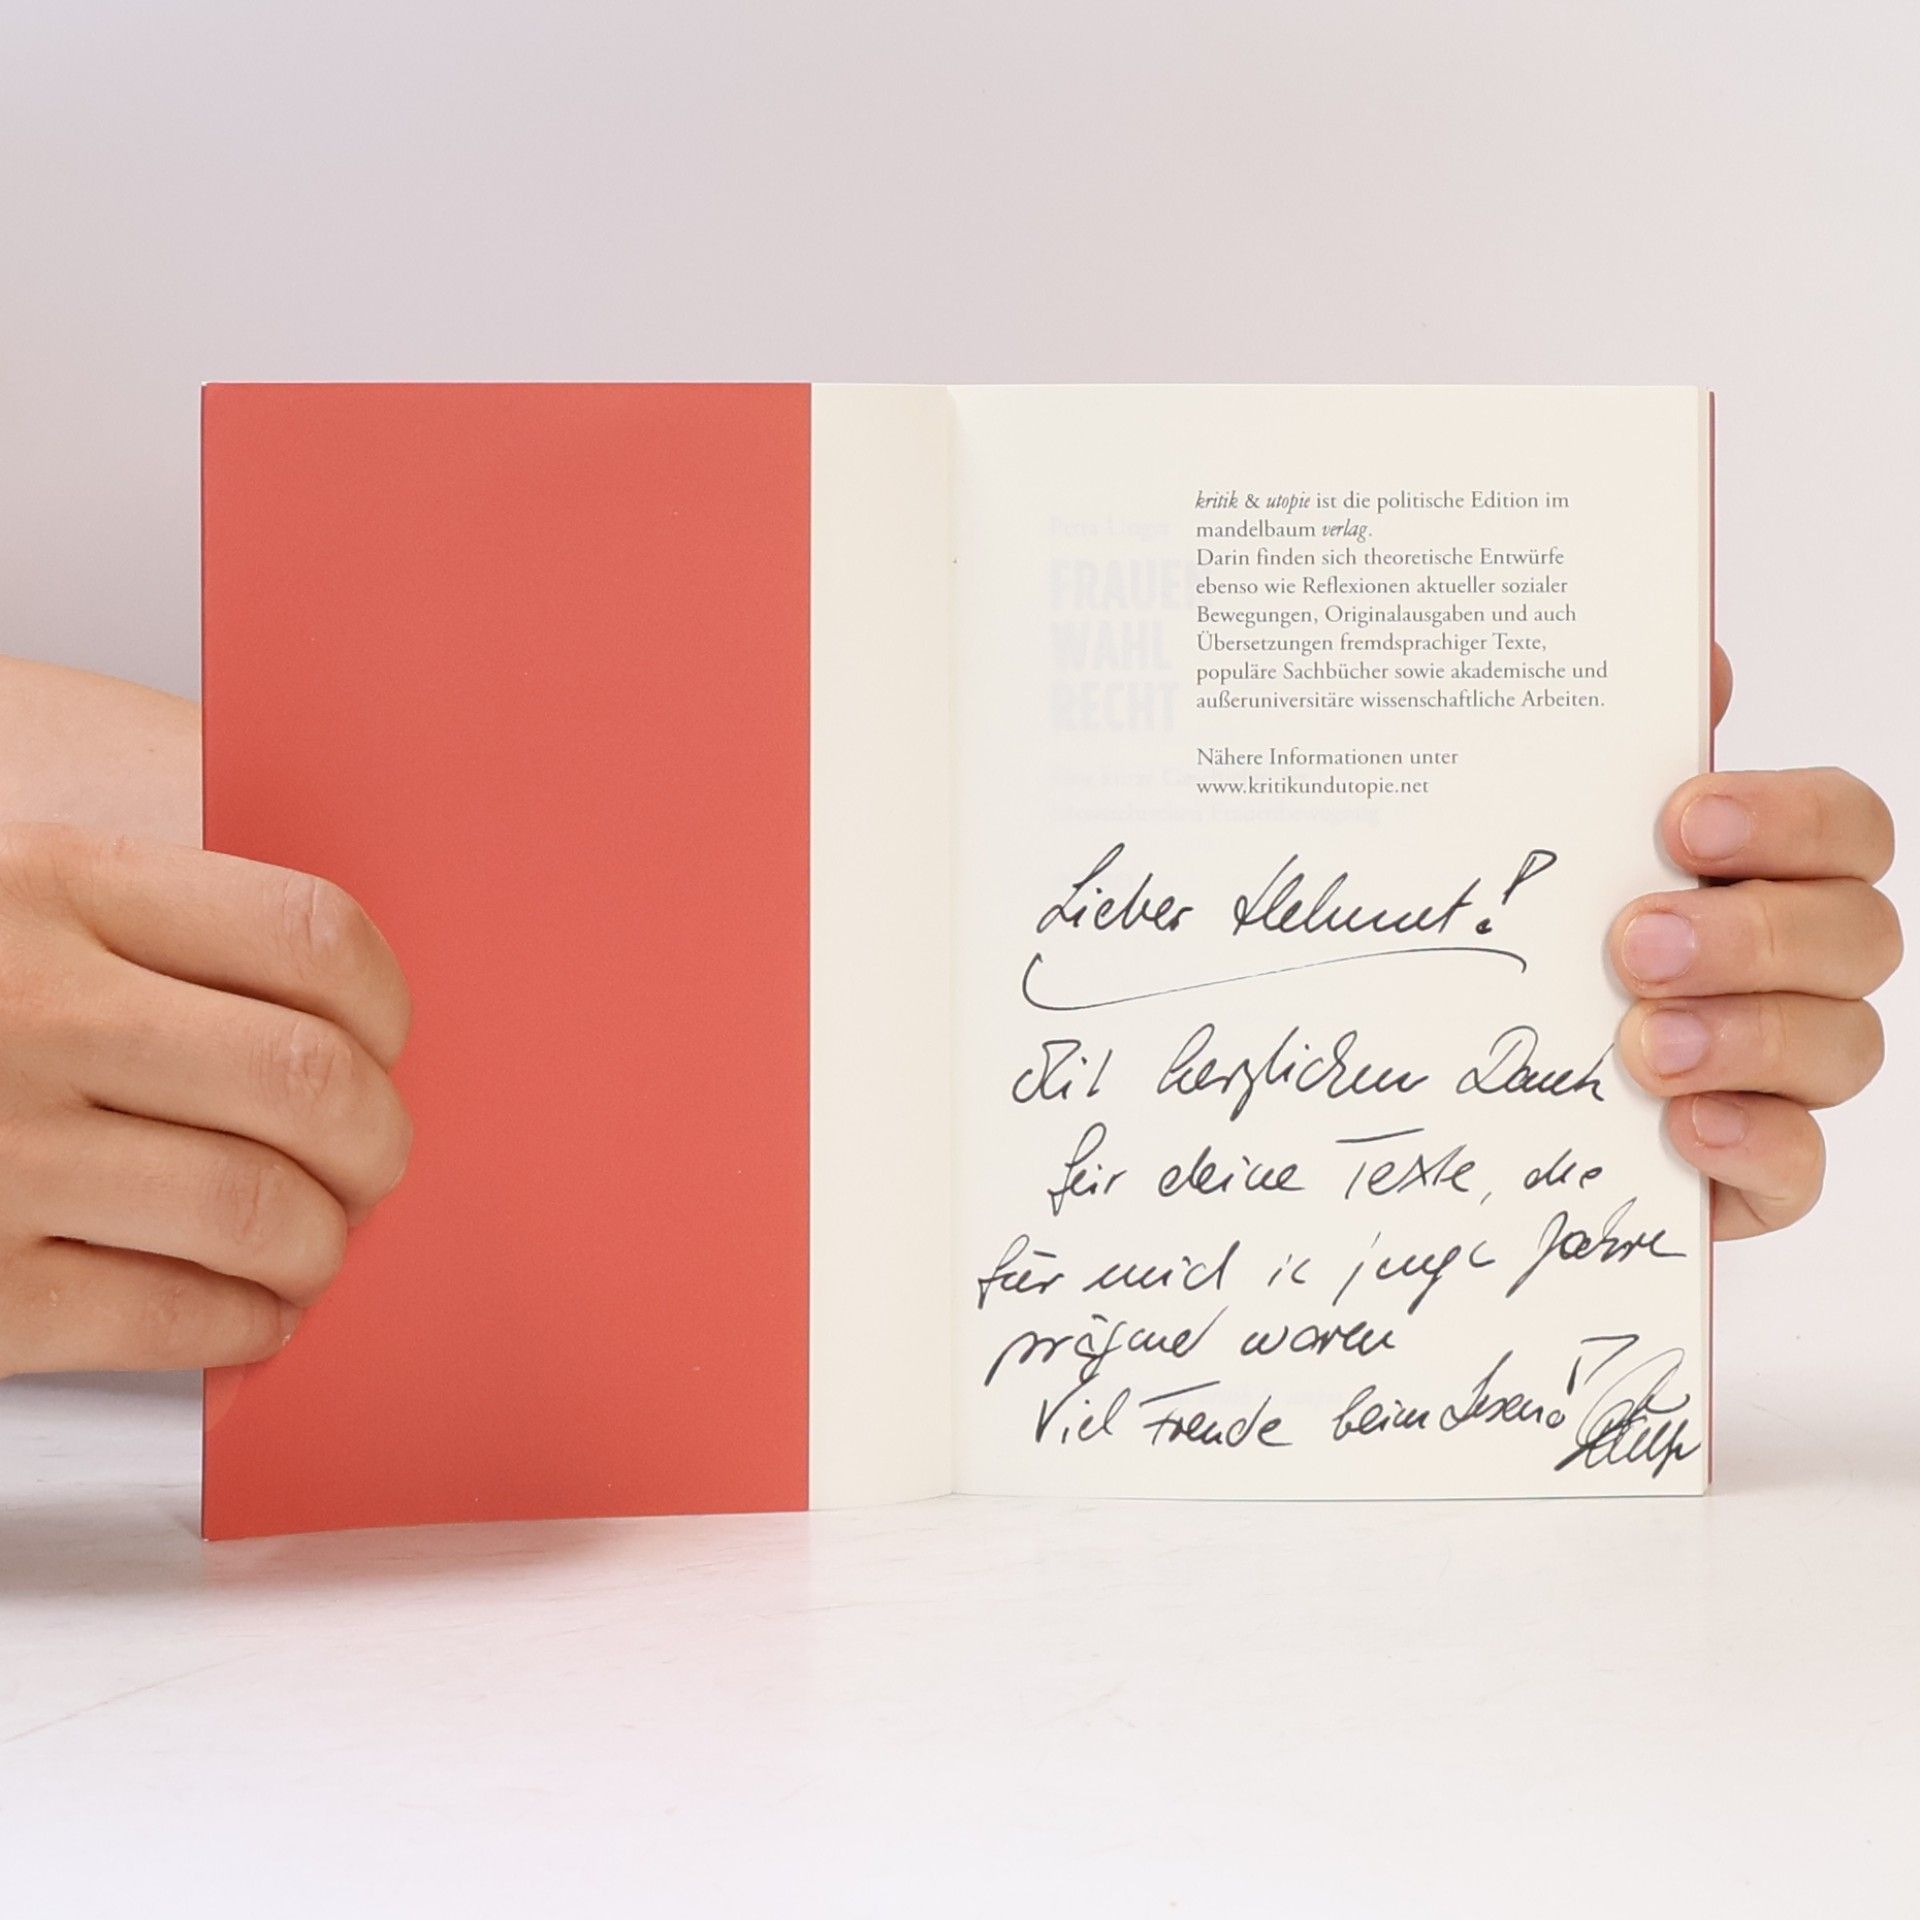 kritik & utopie ist die politische Edition im
mandelbaum verlag.
Darin finden sich theoretische Entwürfe
ebenso wie Reflexionen aktueller sozialer
Bewegungen, Originalausgaben und auch
Übersetzungen fremdsprachiger Texte,
populäre Sachbücher sowie akademische und
außeruniversitäre wissenschaftliche Arbeiten.
Nähere Informationen unter
www.kritikundutopie.net
Petra Unger
FRAUEN
WAHL
RECHT
Lieber Helmut!
Mit herzlichem Dank
für deine Texte, die
für mich in junge Jahre
prägend waren
Viel Freude beim Lesen!